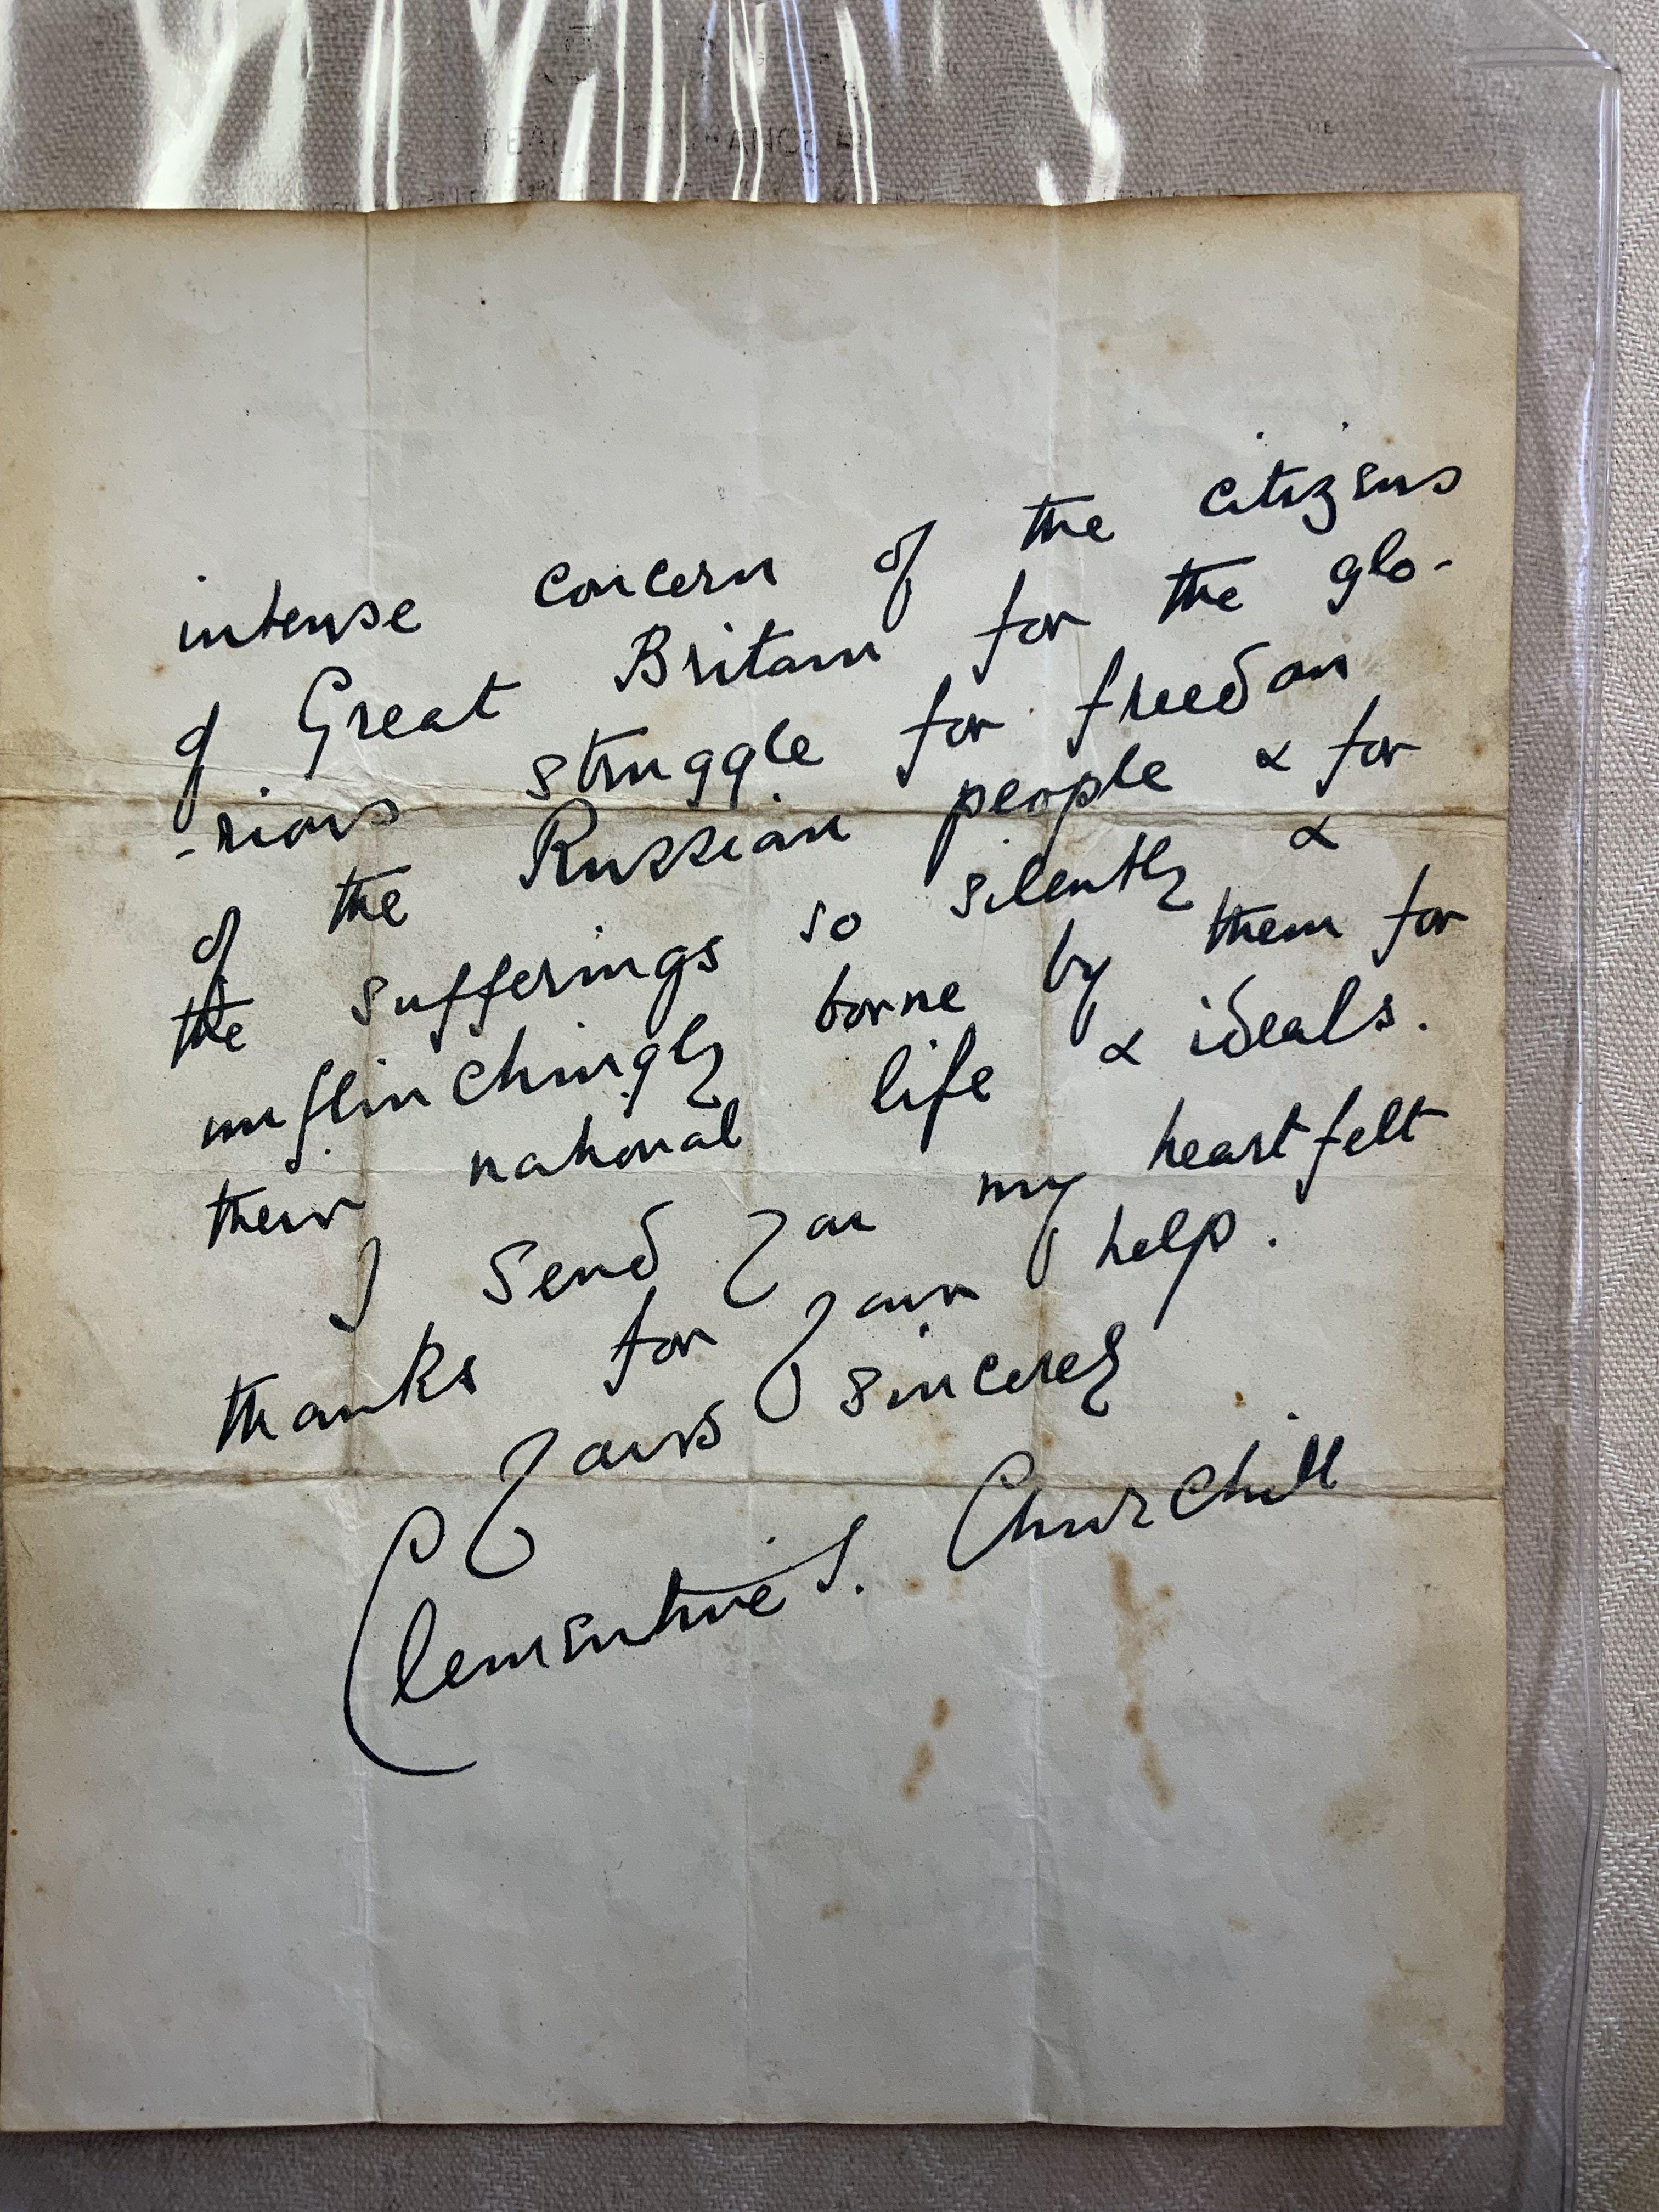 intense concern of the citizens
of Great Britain for the glo-
-rious struggle for freedom
of the Russian people & for
the sufferings so silently &
unflinchingly borne by them for
their national life & ideals.
I send you my heartfelt
thanks for your help.
Yours sincerely
Clementine S. Churchill